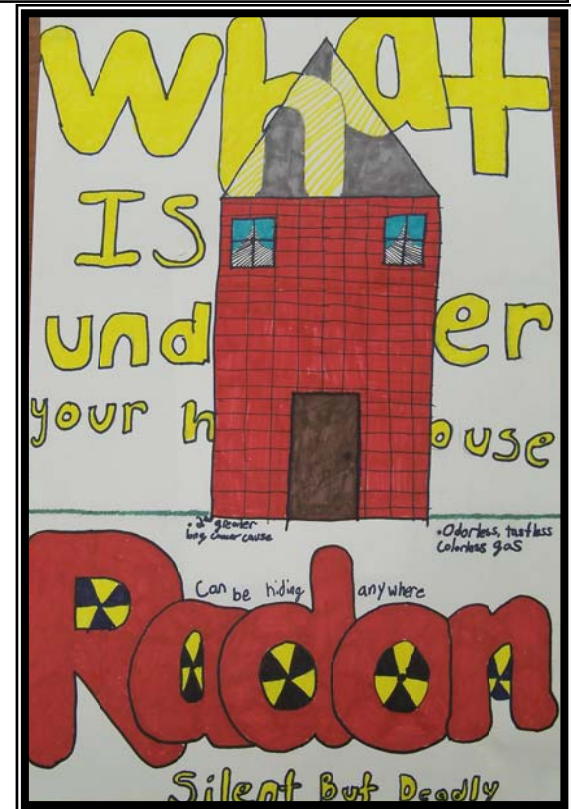 What
Is
under
your house
• 2nd greater
lung cancer cause
• Odorless, tastless
Colorless gas
Can be hiding anywhere
Radon
Silent But Deadly